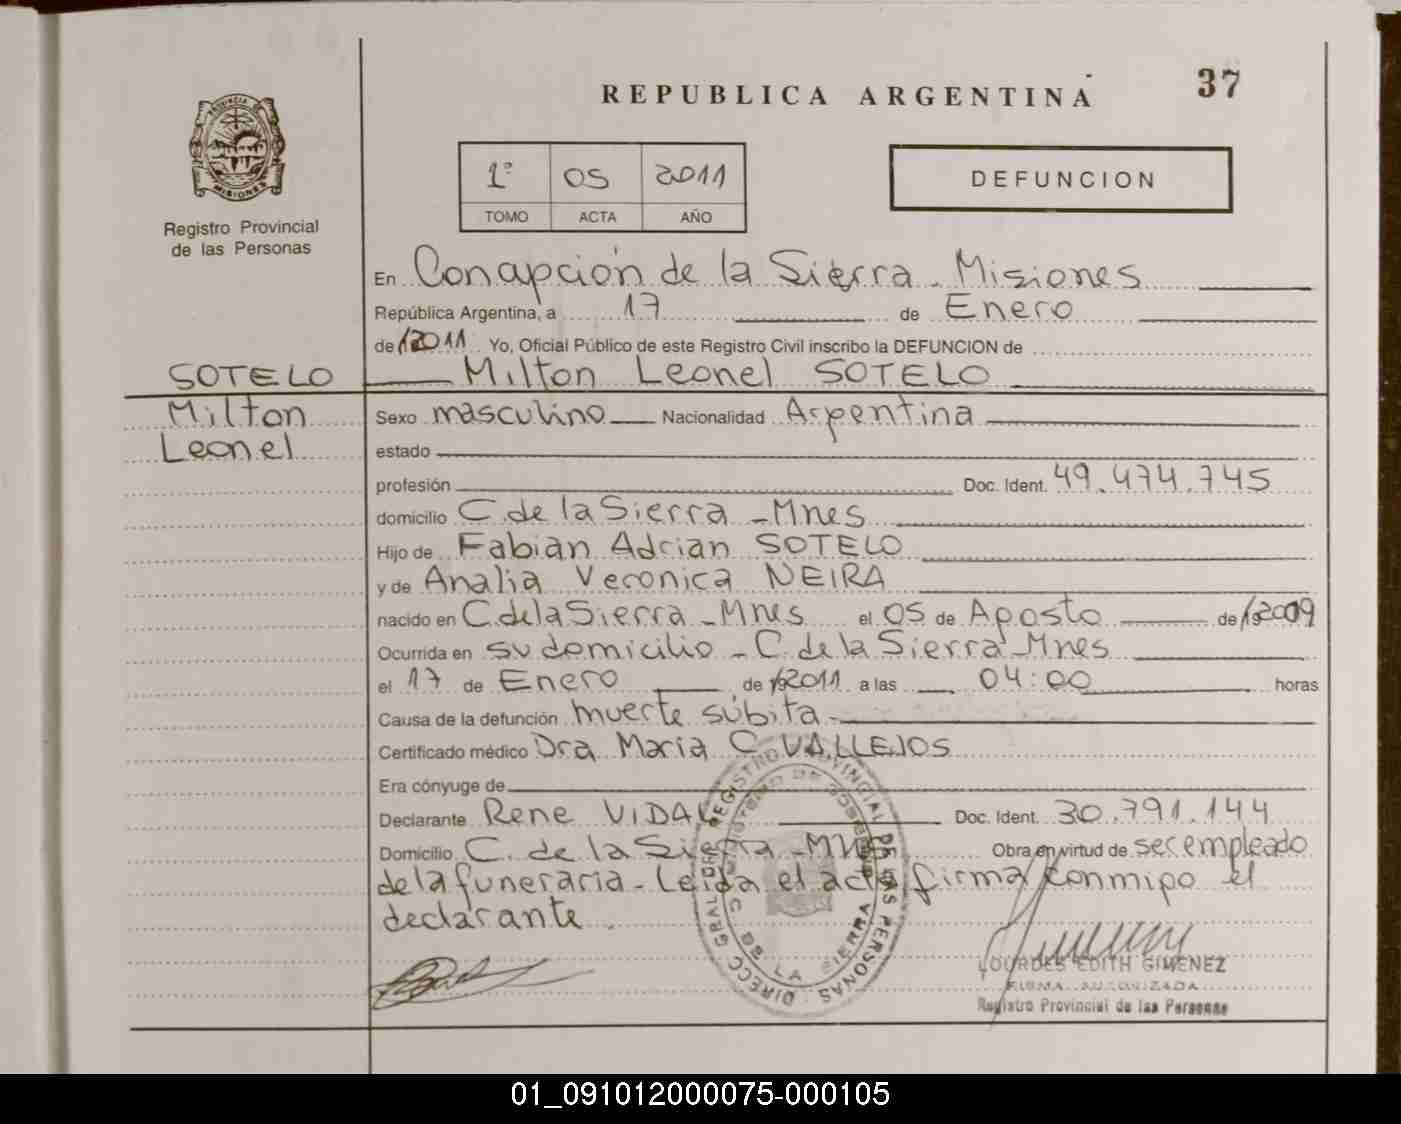 37
REPUBLICA ARGENTINA
PROVINCIA DE
MISIONES
Registro Provincial
de las Personas
1º 05 2011
TOMO ACTA AÑO
DEFUNCION
En Concepción de la Sierra - Misiones
República Argentina, a 17 de Enero
de 2011 Yo, Oficial Público de este Registro Civil inscribo la DEFUNCION de
SOTELO
Milton Leonel SOTELO
Milton
Leonel
Sexo masculino Nacionalidad Argentina
estado
profesión Doc. Ident. 49.474.745
domicilio C. de la Sierra - Mnes
Hijo de Fabian Adrian SOTELO
y de Analia Veronica NEIRA
nacido en C. de la Sierra - Mnes el 05 de Agosto de 2009
Ocurrida en su domicilio - C. de la Sierra - Mnes
el 17 de Enero de 2011 a las 04:00 horas
Causa de la defunción muerte súbita
Certificado médico Dra Maria C. VALLEJOS
Era cónyuge de
Declarante Rene VIDAL Doc. Ident. 30.791.144
Domicilio C. de la Sierra - Mnes Obra en virtud de ser empleado
de la funeraria - Leida el acta firma conmigo el
declarante.
DIRECC GRAL DE REGISTRO PROVINCIAL DE LAS PERSONAS
C DE LA SIERRA
LOURDES EDITH GIMENEZ
FIRMA AUTORIZADA
Registro Provincial de las Personas
01_091012000075-000105